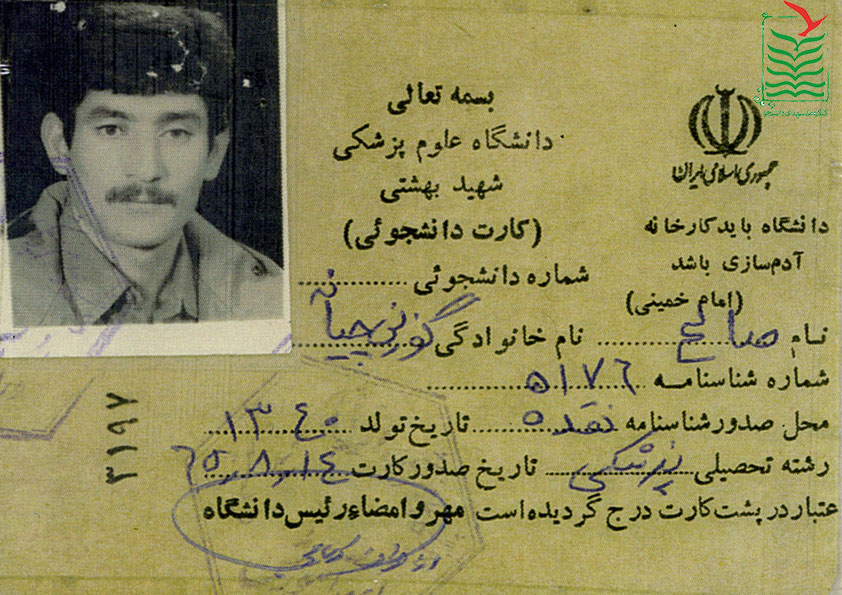 بسمه تعالی
دانشگاه علوم پزشکی
شهید بهشتی
(کارت دانشجوئی)
جمهوری اسلامی ایران
دانشگاه باید کارخانه
آدم‌سازی باشد
(امام خمینی)
شماره دانشجوئی
نام صالح نام خانوادگی
شماره شناسنامه ٥١٧٦
محل صدور شناسنامه نقده تاریخ تولد ١٣٤٠
رشته تحصیلی پزشکی تاریخ صدور کارت ٦٥,٨,١٤
اعتبار در پشت کارت درج گردیده است مهر و امضاء رئیس دانشگاه
٣١٩٧